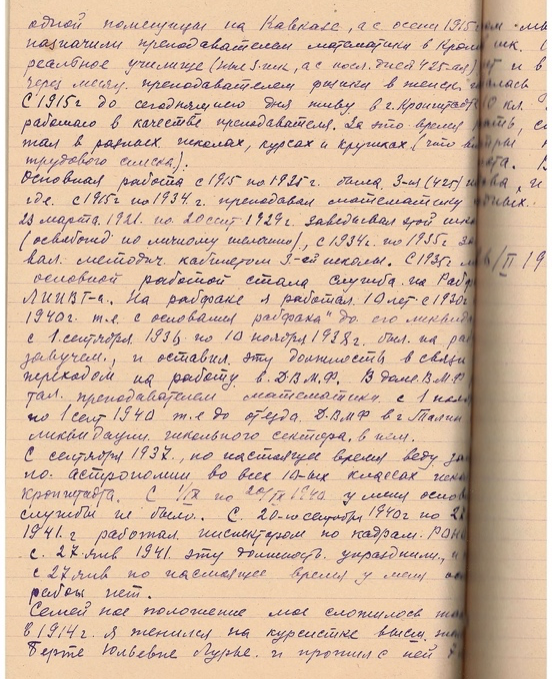 одной помещицы на Кавказе, а с осени 1915
назначили преподавателем математики в Крон
реальное училище (ныне 3 шк., а с посл. дней 425-ая)
через месяц преподавателем физики в женск.
С 1915 г до сегодняшнего дня живу в г. Кронштадте
работаю в качестве преподавателя. За это время
тал в разных школах, курсах и кружках (что
трудового списка).
Основная работа с 1915 по 1935 г. была 3-я (425)
где с 1915 г по 1934 г. преподавал математику
23 марта 1921 по 20 сент 1929 г. заведывал этой
(освобожд по личному желанию), с 1934 г. по 1935 г за
вал. методич. кабинетом 3-ей школы. С 1935 г
основной работой стала служба на Раб
ЛИИВТ-а. На рабфаке я работал 10 лет с 1930
1940 г. т.е. с основания рабфака" до его ликвид
с 1 сентября 1936 по 10 ноября 1938 г. был на
завучем, и оставил эту должность в связи
переходом на работу в Д.В.М.Ф. В доме В.М.Ф
тал преподавателем математики с 1
по 1 сент 1940 т.е до отъезда Д.В.М.Ф в г. Талин
ликвидации школьного сектора, в нем.
С сентября 1937 по настоящее время веду
по астрономии во всех 10-ых классах
Кронштадта. С 1/IX по 20/IX 1940 у меня основ
службы не было. С 20-го сентября 1940 г по 27
1941 г работал инспектором по кадрам РОНО
с 27 янв 1941 эту должность упразднили,
с 27 янв по настоящее время у меня
работы нет.
Семейное положение мое сложилось
в 1914 г. я женился на курсистке высш.
Берте Юльевне Лурье и прожил с ней